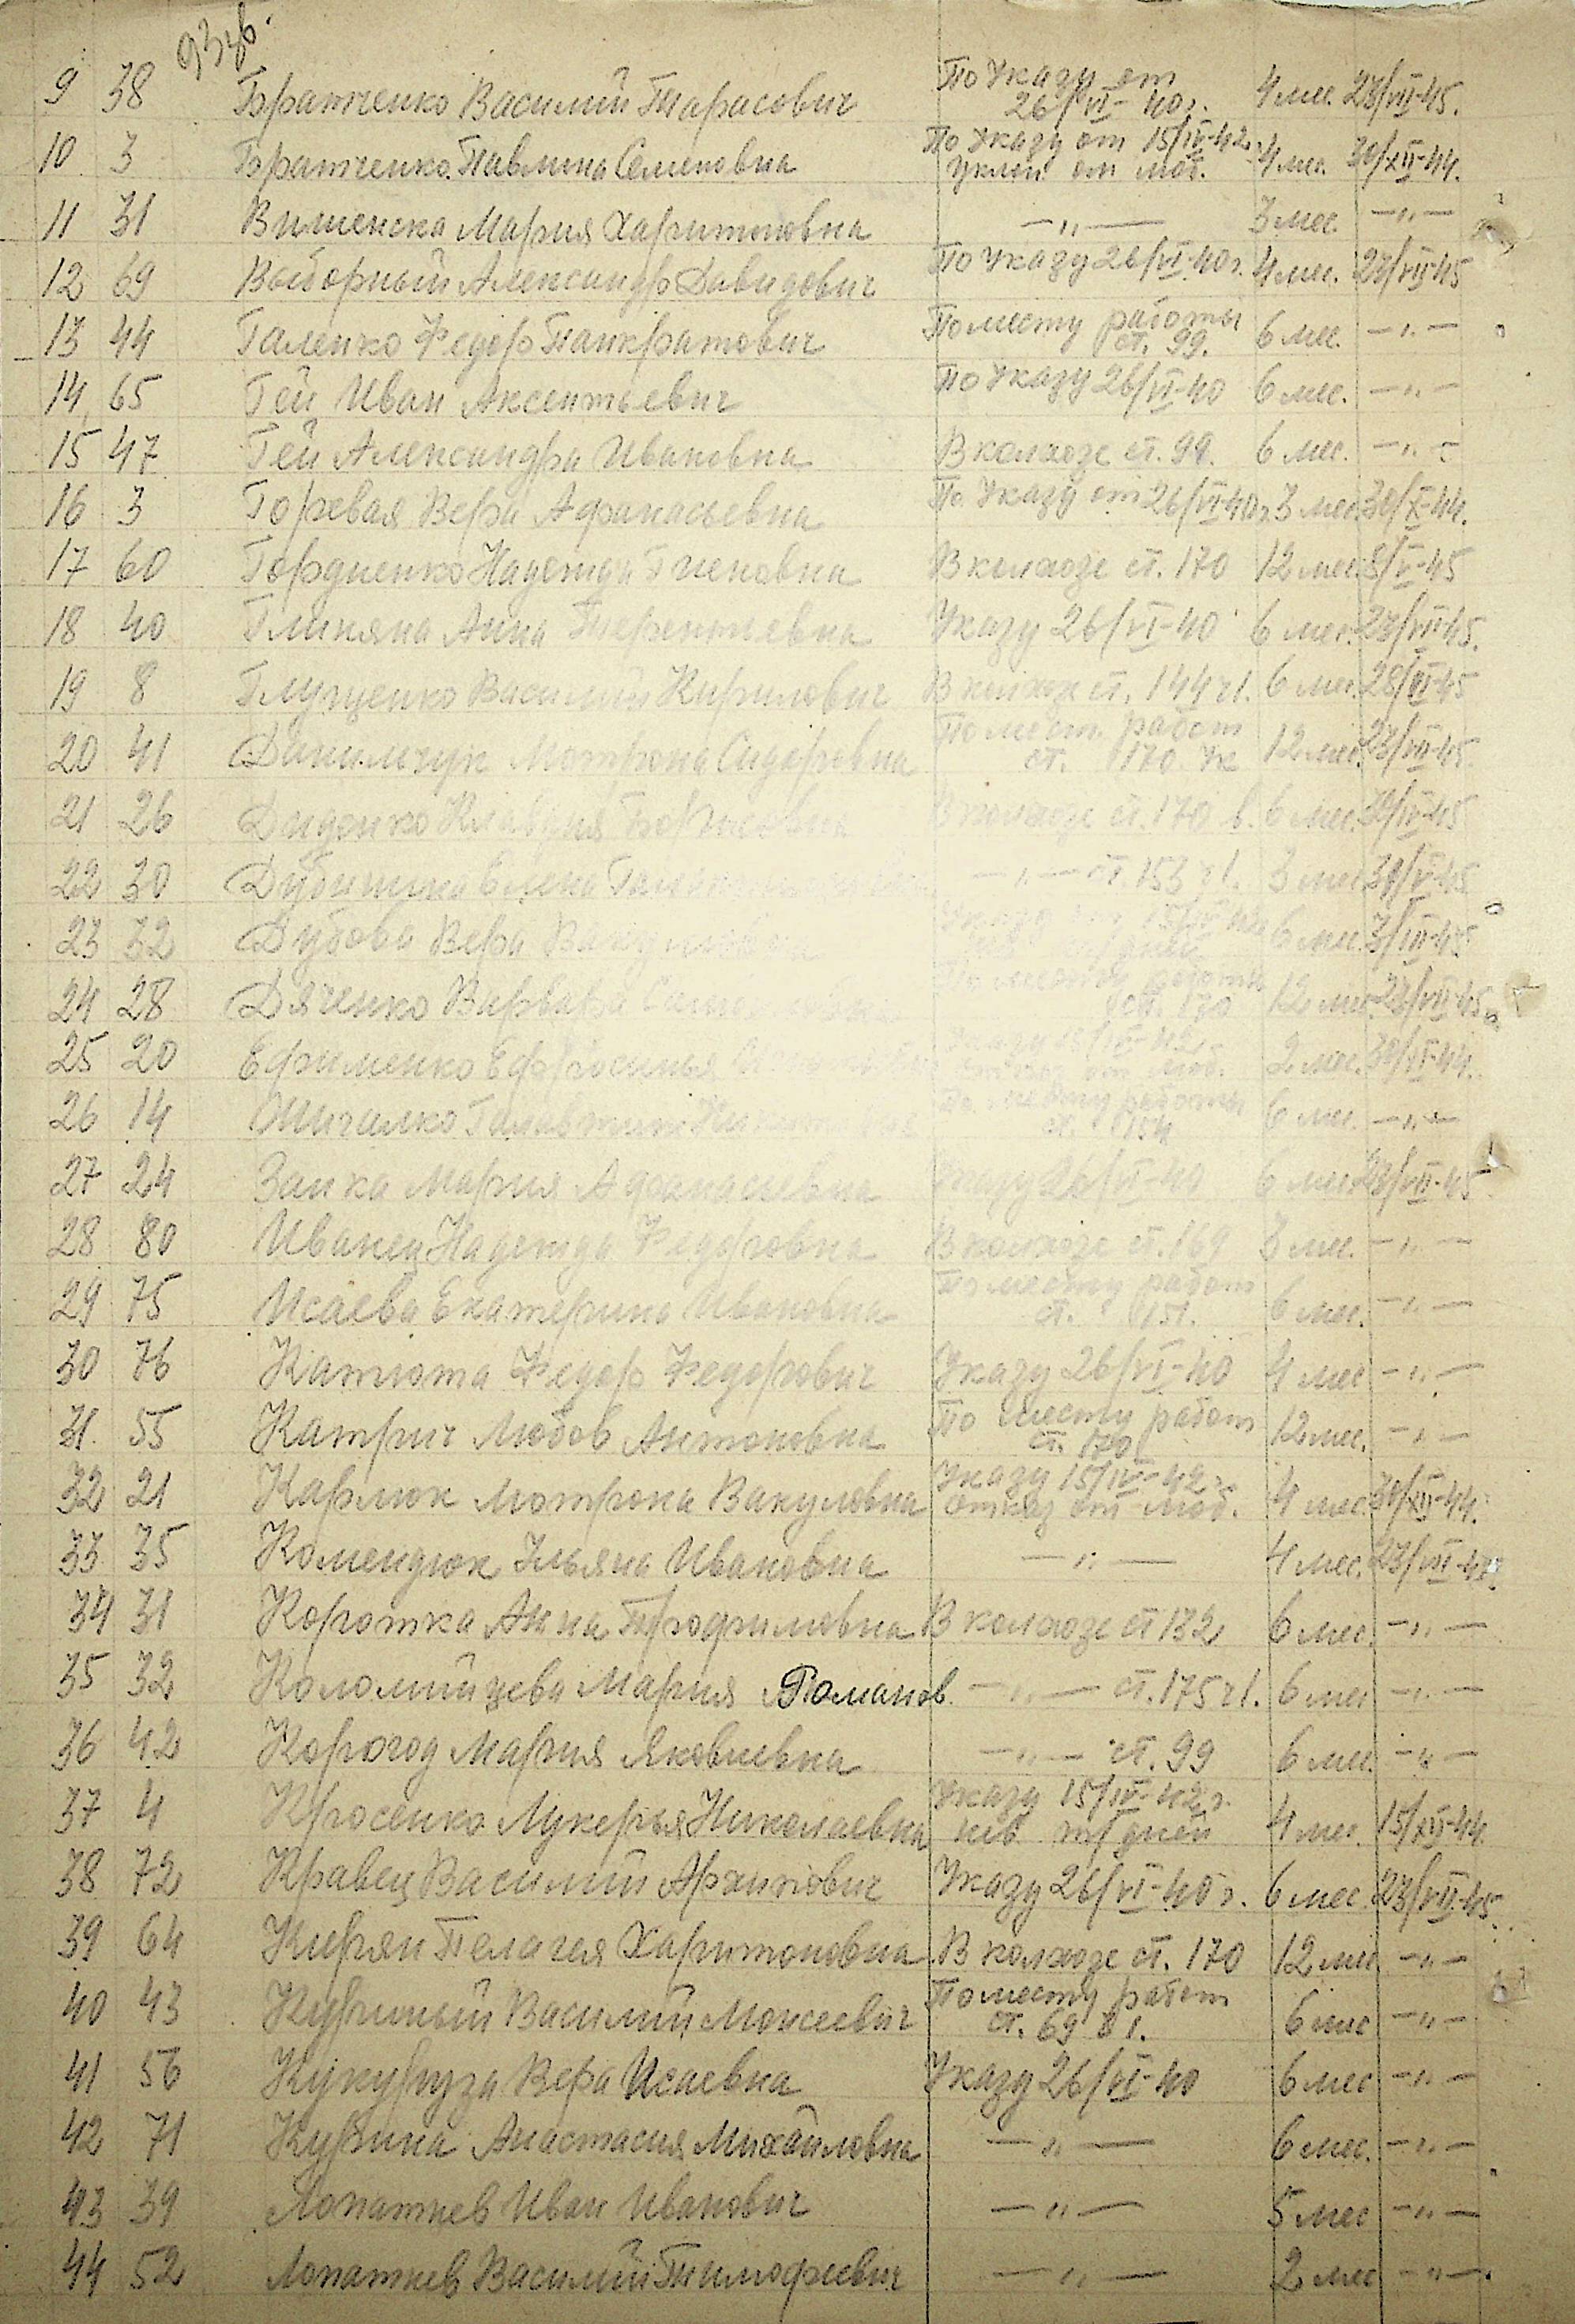 9 38 Братченко Василий Тарасович По Указу от 26/VI-40г. 4 мес. 23/VII-45.
10 3 Братченко Павлина Семеновна По Указу от 15/IV-42г. Уклон. от моб. 4 мес. 30/XII-44.
11 31 Вишенска Мария Харитоновна —„— 3 мес. —„—
12 69 Выборный Александр Давидович По Указу 26/VI-40г. 4 мес. 23/VII-45
13 44 Галенко Федор Панкратович По месту работы ст. 99. 6 мес. —„—
14 65 Гей Иван Аксентьевич По Указу 26/VI-40 6 мес. —„—
15 47 Гей Александра Ивановна В колхозе ст. 99. 6 мес. —„—
16 3 Горевая Вера Афанасьевна По Указу от 26/VI-40г. 3 мес. 30/X-44.
17 60 Гордиенко Надежда В колхозе ст. 170 12 мес. 8/V-45
18 40 Анна Терентиевна Указу 26/VI-40 6 мес. 23/VII-45.
19 8 Глущенко Василий Кирилович В колхозе ст. 144 ч1. 6 мес. 28/VI-45
20 41 Данильчук Мотрона Сидоровна По мест. работ ст. 170 12 мес. 23/VII-45.
21 26 Диденко Клавдия В колхозе ст. 170 6 мес.
22 30 Елена —„— ст. 153 ч1. 3 мес.
23 32 Дубова Вера Указу 6 мес.
24 28 Дяченко Варвара По месту работы ст. 170 12 мес. 23/VII-45.
25 20 Ефименко Ефросинья от моб. 2 мес.
26 14 По месту работы ст. 154 6 мес. —„—
27 24 Заика Мария Афанасьевна Указу 26/VI-40 6 мес. 23/VII-45
28 80 Иванец Надежда Федоровна В колхозе ст. 169 3 мес. —„—
29 75 Исаева Екатерина Ивановна По месту работ ст. 151. 6 мес. —„—
30 76 Катюта Федор Федорович Указу 26/VI-40 4 мес —„—
31. 55 Катрич Любов Антоновна По месту работ ст. 170 12 мес. —„—
32 21 Карлюк Мотрона Вакуловна Указу 15/IV-42г. отказ от моб. 4 мес. 30/XII-44.
33 35 Комендюк Ульяна Ивановна —„— 4 мес. 23/VII-45.
34 31 Коротка Анна Трофимовна В колхозе ст 132 6 мес. —„—
35 32 Коломийцева Мария Романов. —„— ст. 175 ч1. 6 мес —„—
36 42 Корогод Мария Яковлевна —„— ст. 99 6 мес. —„—
37 4 Кросенко Лукерья Николаевна Указу 15/IV-42г. нев. т/дней 4 мес. 15/XII-44.
38 72 Кравец Василий Архипович Указу 26/VI-40г. 6 мес. 23/VII-45.
39 64 Кирян Пелагея Харитоновна В колхозе ст. 170 12 мес —„—
40 43 Куриный Василий Моисеевич По месту работ ст. 69 6 мес —„—
41 56 Кукуруза Вера Исаевна Указу 26/VI-40 6 мес —„—
42 71 Анастасия Михайловна —„— 6 мес. —„—
43 39 Лопатнев Иван Иванович —„— 5 мес —„—
44 52 Лопатнев Василий Тимофиевич —„— 2 мес —„—